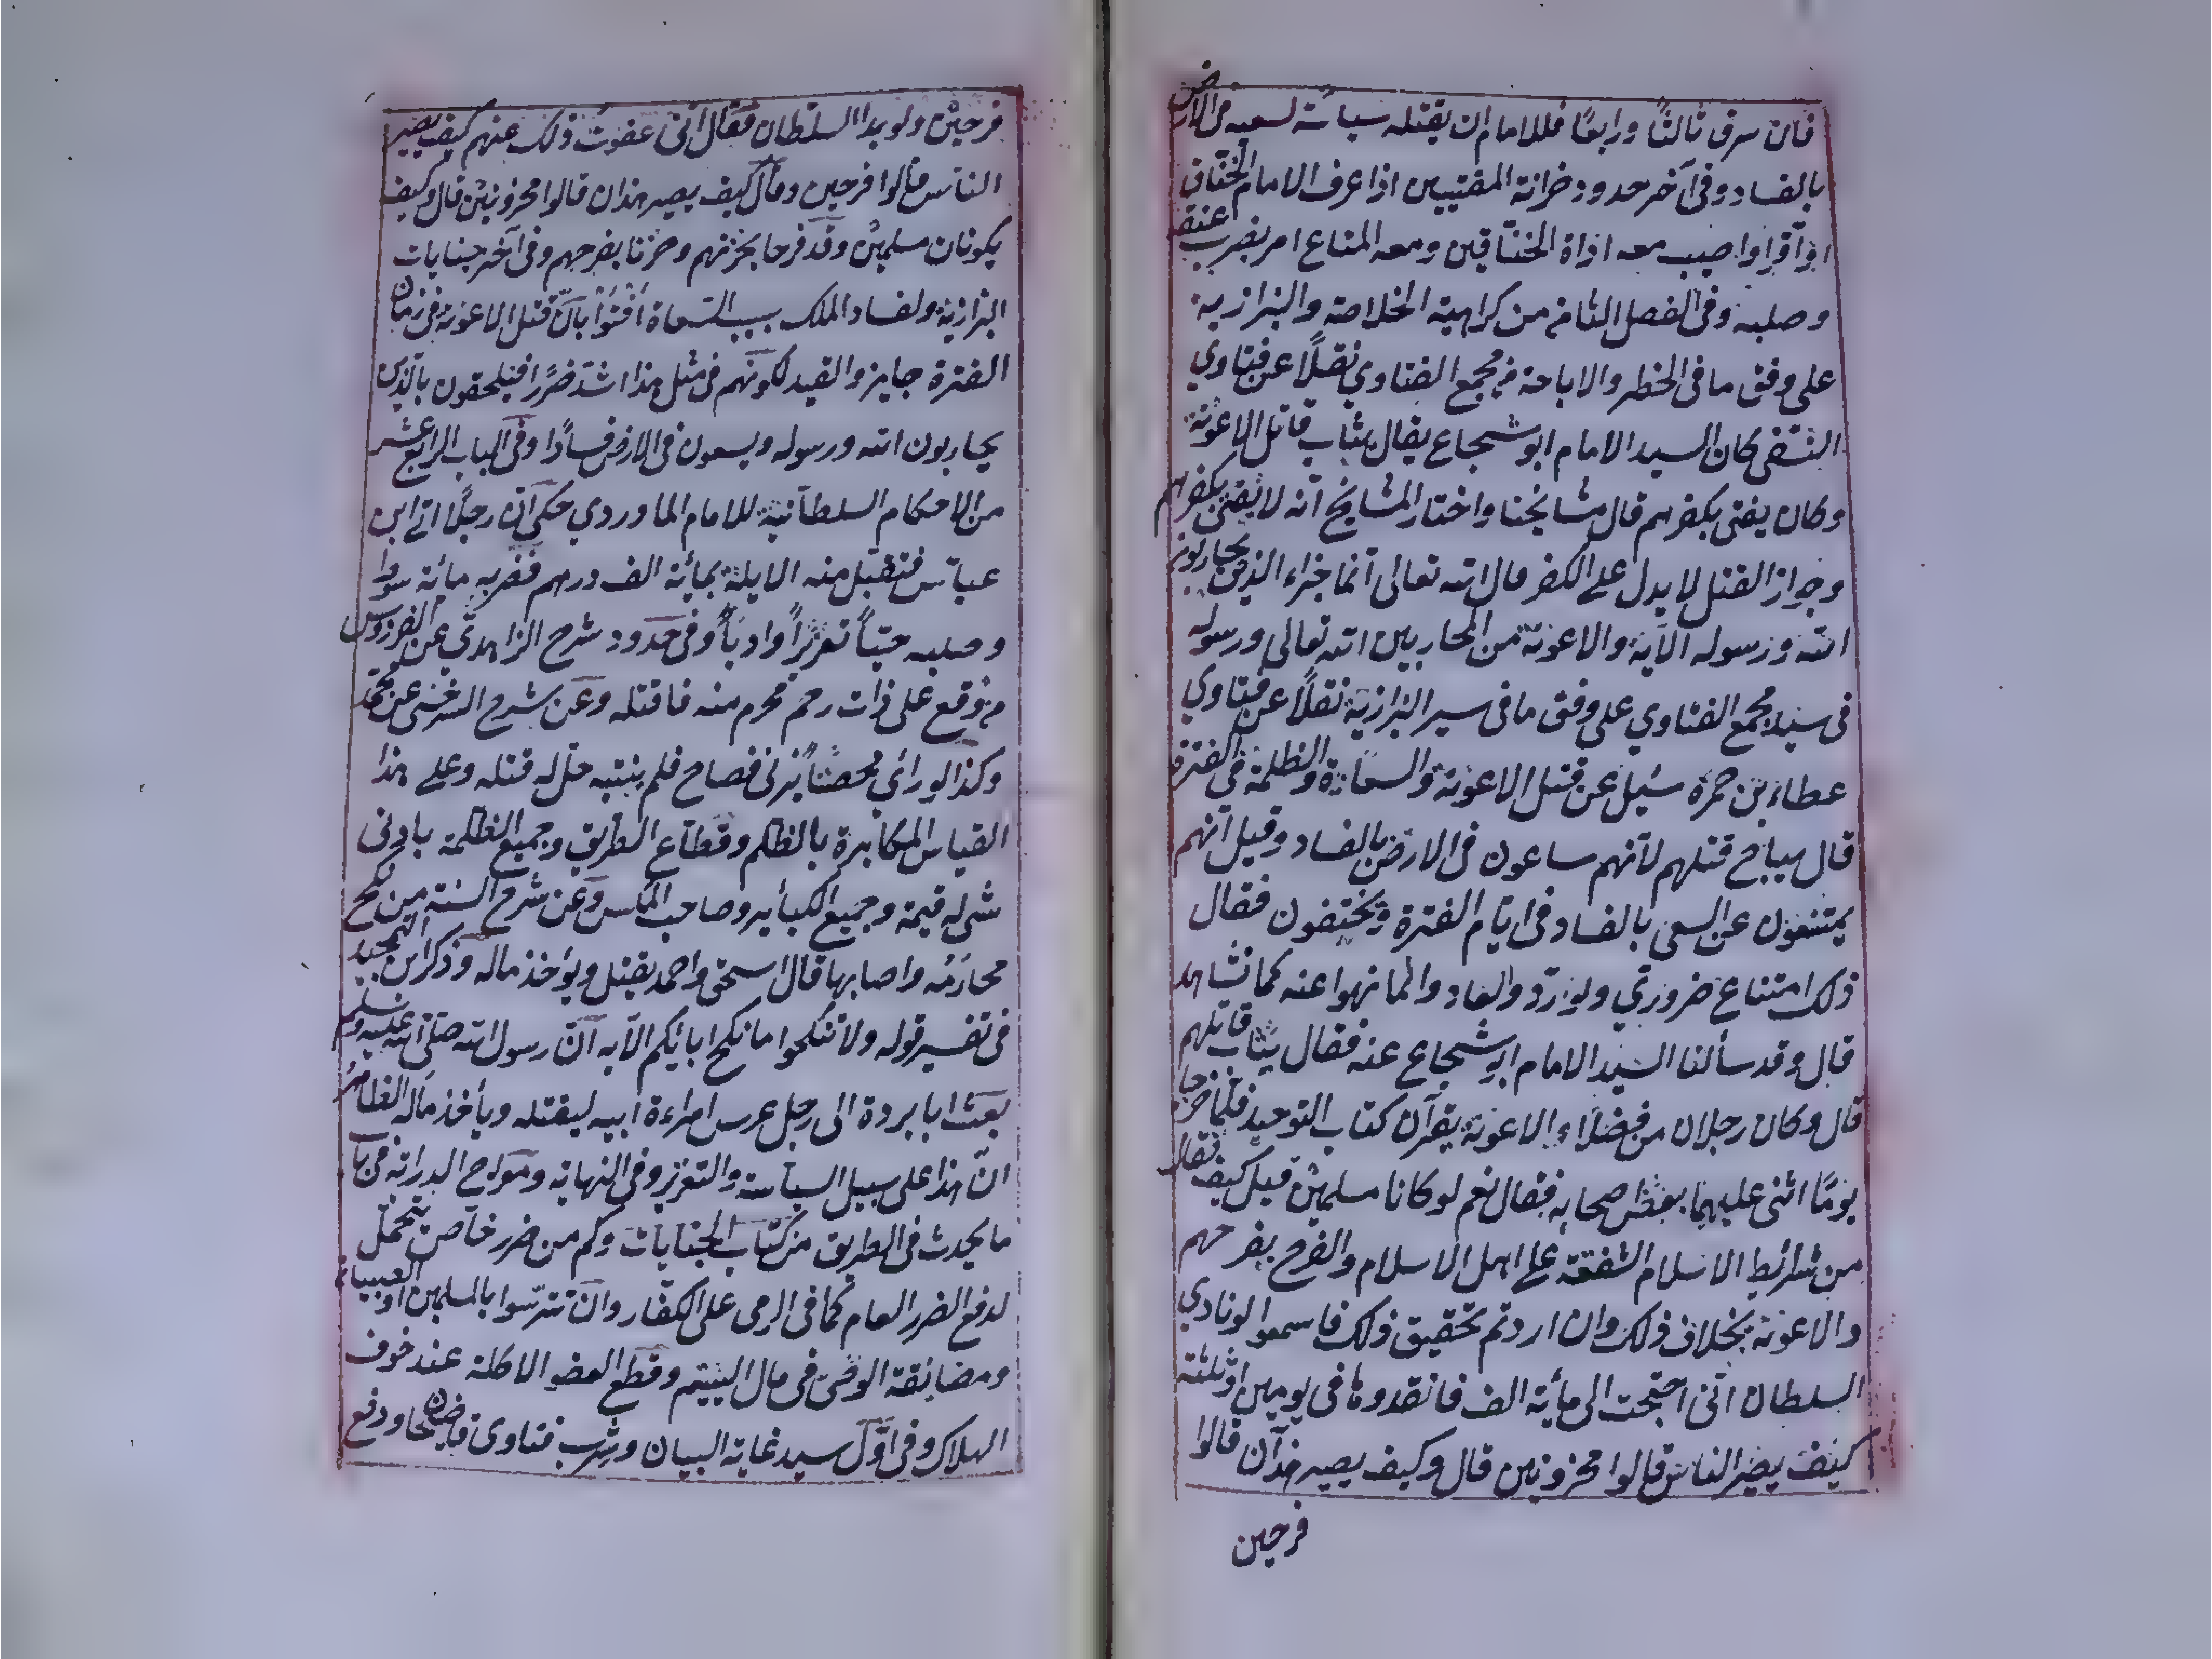 فان سرق ثالثًا ورابعًا فللامام ان يقتله سياسة لسعيه فى الارض
بالفساد وفى آخر حدود خزانة المفتيين اذا عرف الامام الخنّاق
او آقرّ او اصيب معه اداة الخنّاقين ومعه المتاع امر بضرب عنقه
وصلبه وفى الفصل الثامن من كراهية الخلاصة والبزازية
على وفق ما فى الحظر والاباحة من مجمع الفتاوي نقلًا عن فتاوي
النسفى كان السيد الامام ابو شجاع يقال يثاب قاتل الاعونة
وكان يفتى بكفرهم قال مشايخنا واختار المشايخ انّه لا يفتى بكفرهم
وجواز القتل لا يدل على الكفر قال الله تعالى انّما جزاء الذين يحاربون
الله ورسوله الآية والاعونة من المحاربين الله تعالى ورسوله
فى سير مجمع الفتاوي على وفق ما فى سير البزازية نقلًا عن فتاوي
عطاء بن حمزة سئيل عن قتل الاعونة والسعاة والظلمة فى الفترة
قال يباح قتلهم لانّهم ساعون فى الارض بالفساد وقيل انّهم
يمتنعون عن السعى بالفساد فى ايّام الفترة ويختفون فقال
ذلك امتناع ضروري ولو ردّوا لعادوا لما نهوا عنه كما نشاهد
قال وقد سألنا السّيد الامام ابو شجاع عنه فقال يثاب قاتلهم
قال وكان رجلان من فضلاء الاعونة يقرآن كتاب التوحيد فلمّا خرجا
يومًا اثنى عليهما بعض اصحابه فقال نعم لو كانا مسلمين قيل كيف فقال
من شرائط الاسلام الشفقة على اهل الاسلام والفرح بفرحهم
والاعونة بخلاف ذلك وان اردتم تحقيق ذلك فاسمعوا لو نادي
السلطان انّى احتجت الى مأية الف فانقدوها فى يومين او ثلثة
كيف يصير الناس قالوا محزونين قال وكيف يصير هذآن قالوا
فرحين
فرحين ولو بدا السلطان فقال انّى عفوت ذلك عنهم كيف يصير
الناس قالوا فرحين وقال كيف يصير هذان قالوا محزونين قال وكيف
يكونان مسلمين وقد فرحا بحزنهم وحزنا بفرحهم وفى آخر جنايات
البزازية ولفساد الملك بسبب السعاة افتوا بانّ قتل الاعونة فى زمان
الفترة جايز والقيد لكونهم فى مثل هذا اشدّ ضررًا فيلحقون بالّذين
يحاربون الله ورسوله ويسعون فى الارض فسادًا وفى الباب الرابع عشر
من الاحكام السلطانية للامام الماوردي حكى انّ رجلًا اتى ابن
عباس فتقبل منه الايلة بمائة الف درهم فضربه مائة سوط
وصلبه حيّاً تعزيراً وادباً وفى حدود شرح الزاهدي عن الفردوس
من وقع على ذات رحم محرم منه فاقتله وعن شرح السرخسى عن محمّد
وكذا لو رأي محصناً يزنى فصاح فلم ينتبه حلّ له قتله وعلى هذا
القياس المكابرة بالظلم وقطّاع الطريق وجميع الظلمة بادنى
شئ له قيمة وجميع الكبائر وصاحب المكس وعن شرح السنة من نكح
محارمه واصابها قال اسحق واحمد يقتل ويؤخذ ماله وذكر ابن التمجيد
فى تفسير قوله ولا تنكحوا ما نكح ابائكم الآيه انّ رسول الله صلّى الله عليه وسلم
بعث ابا بردة الى رجل عرس امراءة ابيه ليقتله ويأخذ ماله الظاهر
انّ هذا على سبيل السياسة والتعزير وفى النهاية ومعراج الدراية فى باب
ما يحدث فى الطريق من كتاب الجنايات وكم من ضرر خاص يتحمّل
لدفع الضرر العام كما فى الرمى على الكفّار وان تترّسوا بالمسلمين او الصبيان
ومضائقة الوصىّ فى مال اليتيم وقطع العضو الاكلة عند خوف
الهلاك وفى اوّل سير غاية البيان وشرب فتاوى قاضيخان ودفع